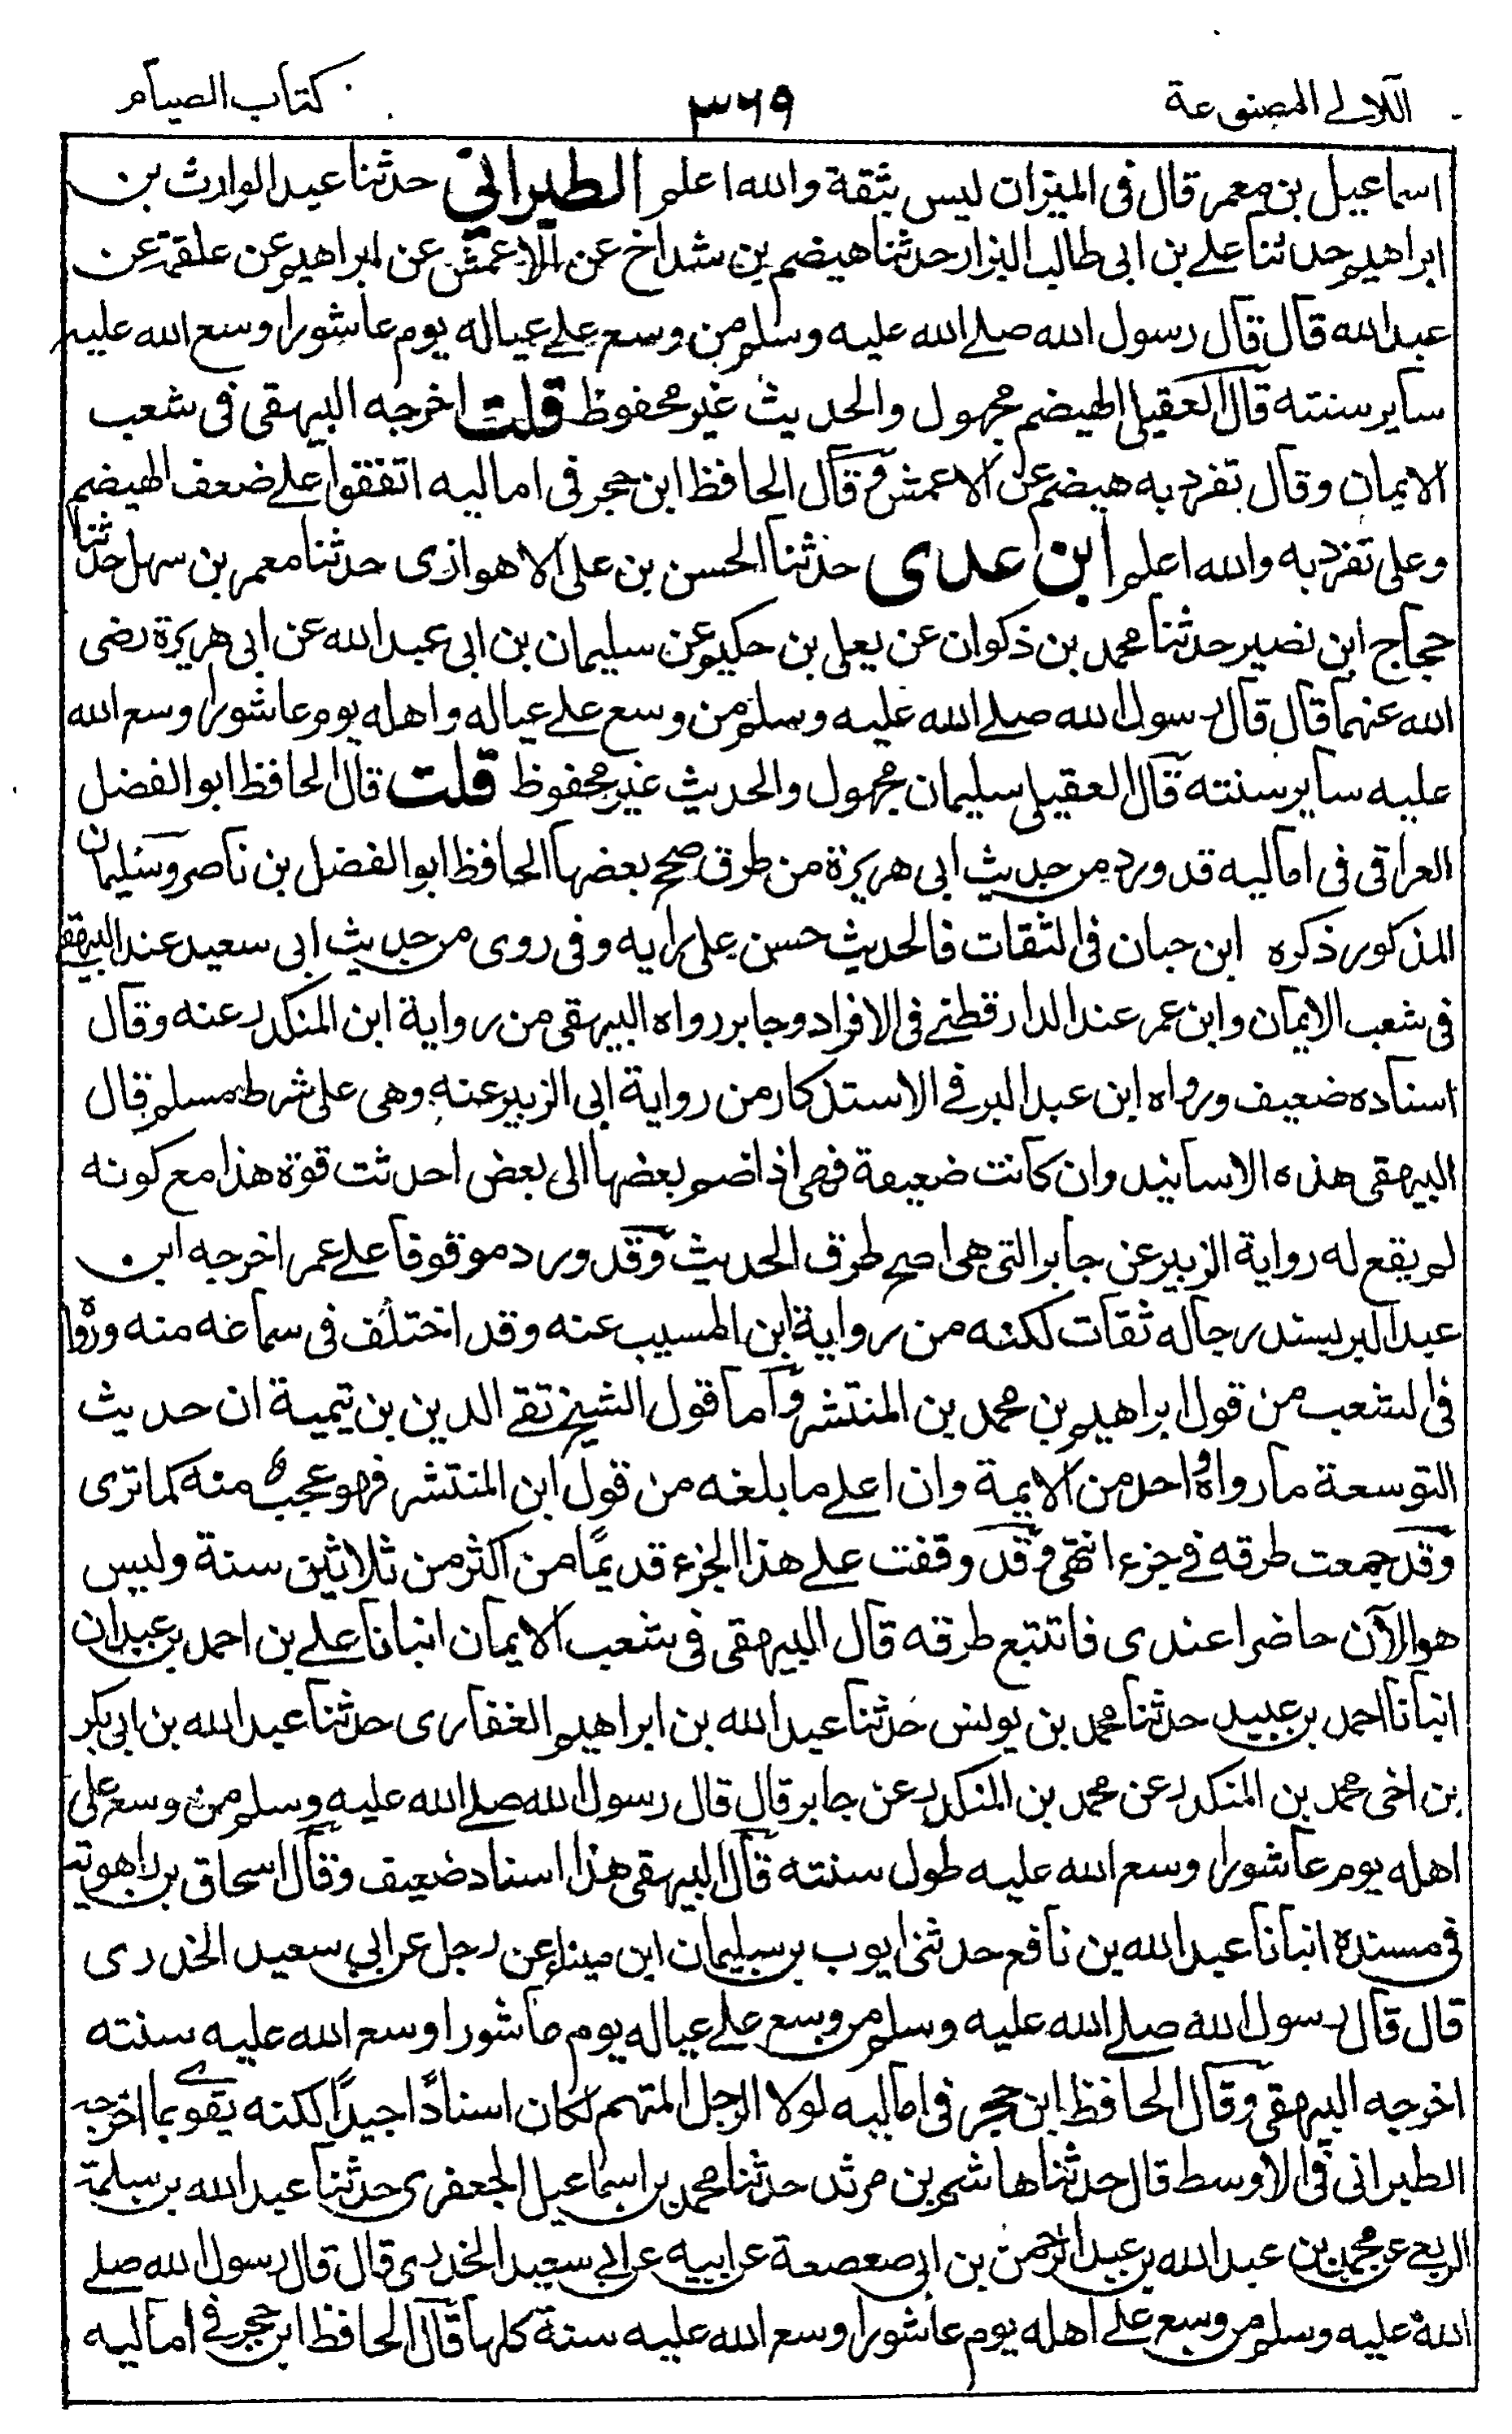 اللآلے المصنوعة ٣٦٩ كتاب الصيام
اسماعيل بن معمر قال فى الميزان ليس بثقة والله اعلم الطبرانى حدثنا عبد الوارث بن
ابراهيم حدثنا علے بن ابى طالب البزار حدثنا هيضم بن شداخ عن الاعمش عن ابراهيم عن علقمة عن
عبد الله قال قال رسول الله صلے الله عليه وسلم من وسع علے عياله يوم عاشورا وسع الله عليه
ساير سنته قال العقيلى الهيضم مجهول والحديث غير محفوظ قلت اخرجه البيهقى فى شعب
الايمان وقال تفرد به هيضم عن الاعمش وقال الحافظ ابن حجر فى اماليه اتفقوا علے ضعف الهيضم
وعلى تفرد به والله اعلم ابن عدى حدثنا الحسن بن على الاهوازى حدثنا معمر بن سهل حدثنا
حجاج ابن نصير حدثنا محمد بن ذكوان عن يعلى بن حكيم عن سليمان بن ابى عبد الله عن ابى هريرة رضى
الله عنهما قال قال رسول الله صلے الله عليه وسلم من وسع علے عياله واهله يوم عاشورا وسع الله
عليه ساير سنته قال العقيلى سليمان مجهول والحديث غير محفوظ قلت قال الحافظ ابو الفضل
العراقى فى اماليه قد ورد من حديث ابى هريرة من طرق صحح بعضها الحافظ ابو الفضل بن ناصر وسليمان
المذكور ذكره ابن حبان فى الثقات فالحديث حسن على رايه وفى روى من حديث ابى سعيد عند البيهقى
فى شعب الايمان وابن عمر عند الدارقطنے فى الافراد وجابر رواه البيهقى من رواية ابن المنكدر عنه وقال
اسناده ضعيف ورواه ابن عبد البر فے الاستذكار من رواية ابى الزبير عنه وهى على شرط مسلم قال
البيهقى هذه الاسانيد وان كانت ضعيفة فهى اذا ضم بعضها الى بعض احدثت قوة هذا مع كونه
لم يقع له رواية الزبير عن جابر التى هى اصح طرق الحديث وقد ورد موقوفا علے عمر اخرجه ابن
عبد البر بسند رجاله ثقات لكنه من رواية ابن المسيب عنه وقد اختلف فى سماعه منه ورواه
فى الشعب من قول ابراهيم بن محمد بن المنتشر واما قول الشيخ تقے الدين بن تيمية ان حديث
التوسعة ما رواه واحد من الايمة وان اعلے ما بلغه من قول ابن المنتشر فهو عجب منه كما ترى
وقد جمعت طرقه فے جزء انتهى وقد وقفت علے هذا الجزء قديمًا من اكثر من ثلاثين سنة وليس
هو الآن حاضرا عندى فاتتبع طرقه قال البيهقى فى شعب الايمان انبانا علے بن احمد بن عبدان
انبانا احمد بن عبيد حدثنا محمد بن يونس حدثنا عبد الله بن ابراهيم الغفارى حدثنا عبد الله بن ابى بكر
بن اخى محمد بن المنكدر عن محمد بن المنكدر عن جابر قال قال رسول الله صلے الله عليه وسلم من وسع على
اهله يوم عاشورا وسع الله عليه طول سنته قال البيهقى هذا اسناد ضعيف وقال اسحاق بن راهوية
فى مسنده انبانا عبد الله بن نافع حدثنى ايوب بن سليمان ابن ميناء عن رجل عن ابى سعيد الخدرى
قال قال رسول الله صلے الله عليه وسلم من وسع علے عياله يوم عاشورا وسع الله عليه سنته
اخرجه البيهقى وقال الحافظ ابن حجر فى اماليه لولا الرجل المتهم لكان اسنادًا جيدًا لكنه يقوى بما اخرجه
الطبرانى فى الاوسط قال حدثنا هاشم بن مرثد حدثنا محمد بن اسماعيل الجعفرى حدثنا عبد الله بن سلمة
الربعے عن محمد بن عبد الله بن عبد الرحمن بن ابى صعصعة عن ابيه عن ابى سعيد الخدرى قال قال رسول الله صلے
الله عليه وسلم من وسع علے اهله يوم عاشورا وسع الله عليه سنة كلها قال الحافظ ابن حجر فے اماليه